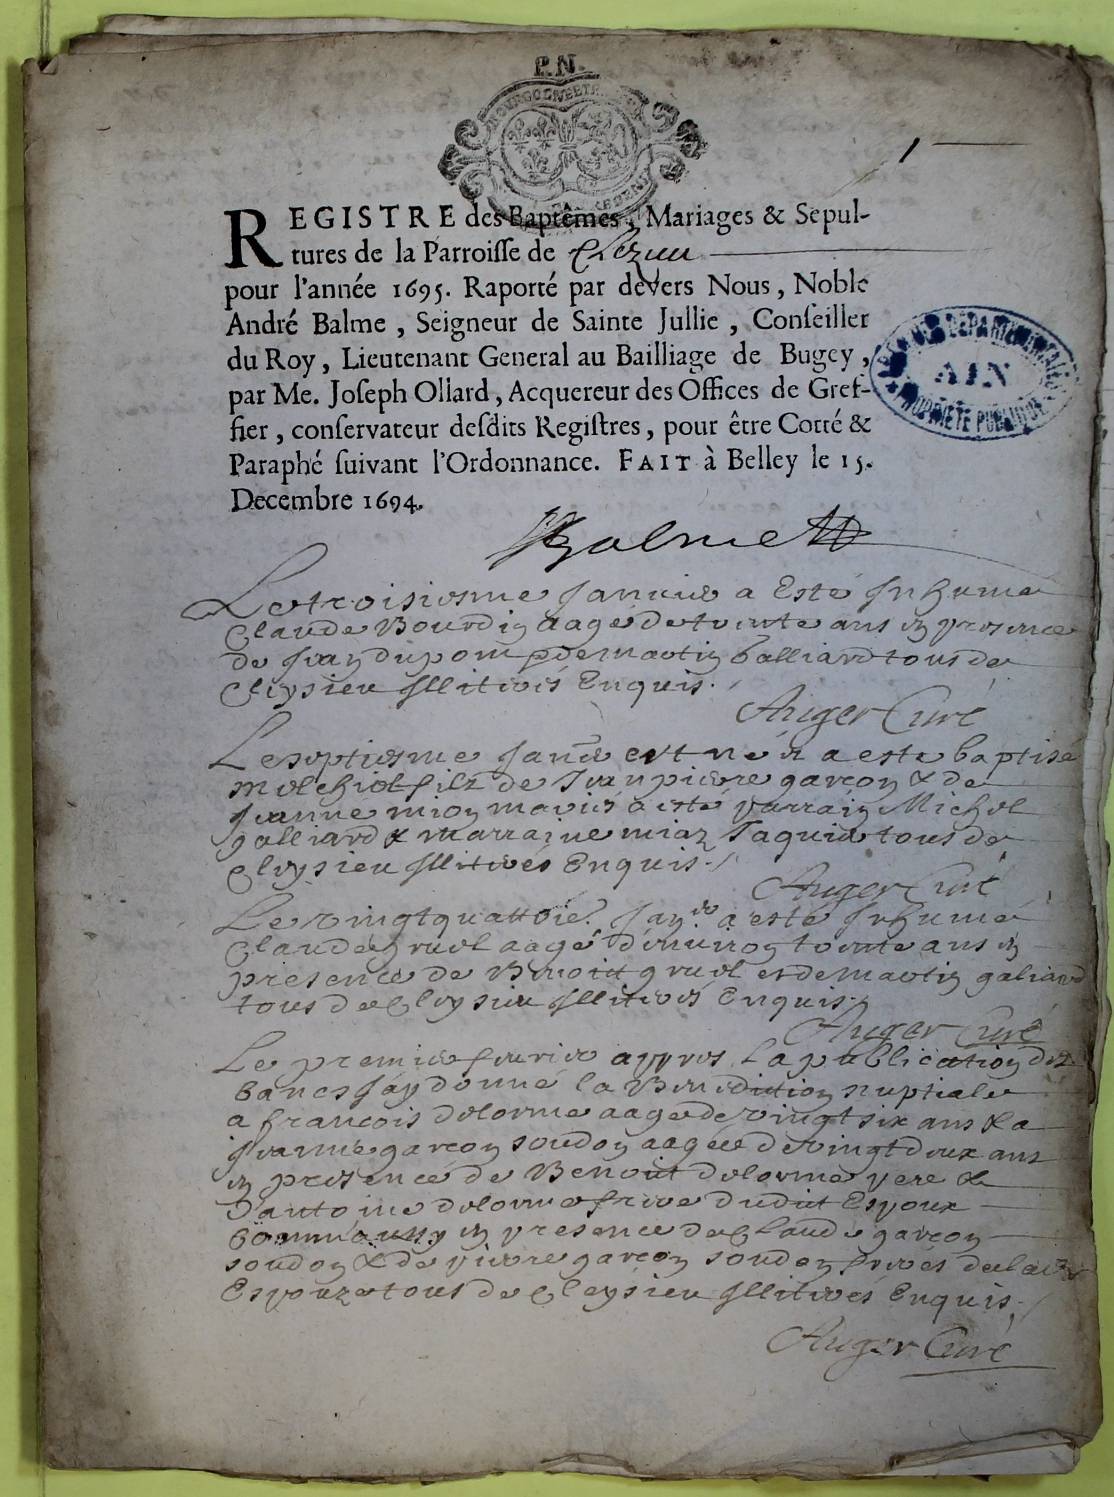 P.N.
1
BOURGOGNE ET BRESSE
REGISTRE des Baptêmes, Mariages & Sepul-
tures de la Parroisse de
pour l'année 1695. Raporté par devers Nous, Noble
André Balme, Seigneur de Sainte Jullie, Conseiller
du Roy, Lieutenant General au Bailliage de Bugey,
par Me. Joseph Ollard, Acquereur des Offices de Gref-
fier, conservateur desdits Registres, pour être Cotté &
Paraphé suivant l'Ordonnance. FAIT à Belley le 15.
Decembre 1694.
ARCHIVES DÉPARTEMENTALES
AIN
PROPRIÉTÉ PUBLIQUE
Balme
Le troisiesme Janvier a esté Inhumé
Claude Bourdin aagé de trente ans en presence
de Jean dupom & de martin galliard tous de
Cleysieu Illiterés Enquis.
Auger Curé
Le septiesme Janer est né & a esté baptisé
melchiol filz de Jean pierre garcon & de
Jeanne mion mariés a esté parrain Michel
galliard & marraine miaz Jaquier tous de
Cleysieu Illiterés Enquis.
Auger Curé
Le vingt quattrie. Janer a esté Inhumé
Claude gruel aagé d'environ trente ans en
presence de Benoitt gruel et de martin galiard
tous de Cleysieu Illiterés Enquis.
Auger Curé
Le premier fevrier appres la publication des
bancs Jay donné la Benediction nuptiale
a francois delorme aagé de vingt six ans & a
Jeanne garcon soudon aagée de vingt deux ans
en presence de Benoit delorme pere &
Dantoine delorme frere dudit Espoux
comme aussy en presence de Claude garcon
soudon & de pierre garcon soudon freres de lad.
Espouze tous de Cleysieu Illiterés Enquis.
Auger Curé